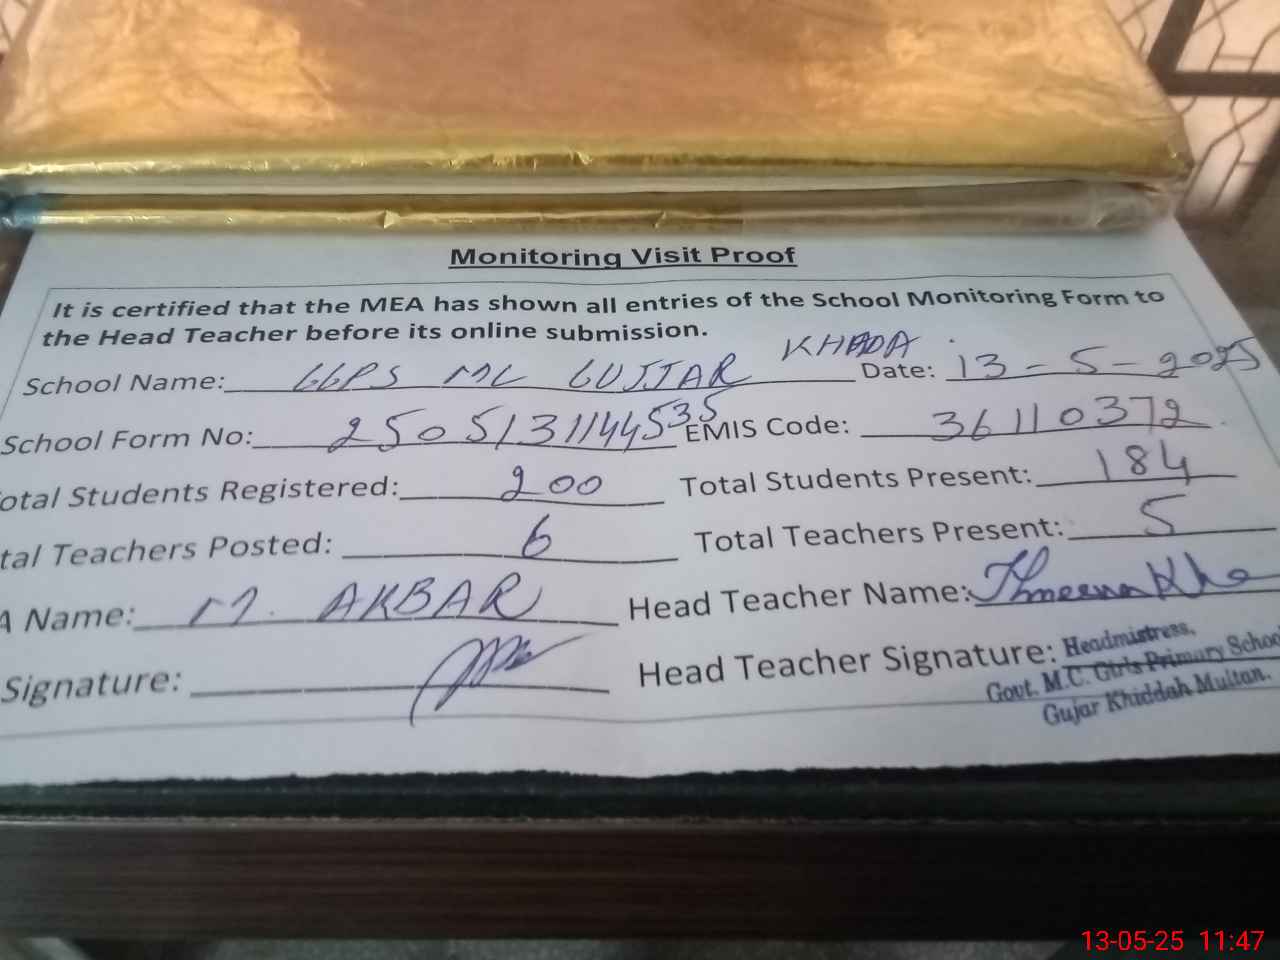 Monitoring Visit Proof
It is certified that the MEA has shown all entries of the School Monitoring Form to
the Head Teacher before its online submission.
School Name: GGPS MC GUJJAR KHADA Date: 13-5-2025
School Form No: 250513114453 5 EMIS Code: 36110372
otal Students Registered: 200 Total Students Present: 184
tal Teachers Posted: 6 Total Teachers Present: 5
A Name: M. AKBAR Head Teacher Name:
Signature: Head Teacher Signature: Headmistress,
Govt. M.C. Girls Primary School
Gujar Khiddah Multan.
13-05-25 11:47